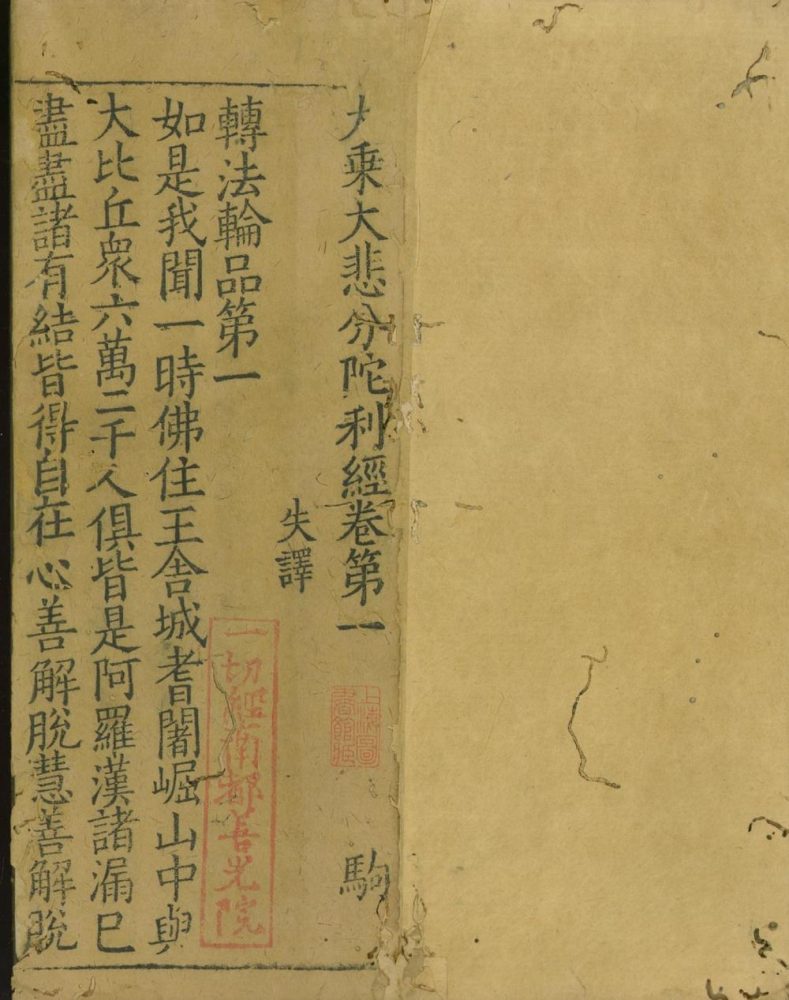 大乗大悲分陀利經卷第一 駒
失譯
轉法輪品第一
如是我聞一時佛住王舍城耆闍崛山中與
大比丘衆六萬二千人俱皆是阿羅漢諸漏巳
盡盡諸有結皆得自在心善解脫慧善解脫
上海圖書館藏
一切經南都善光院